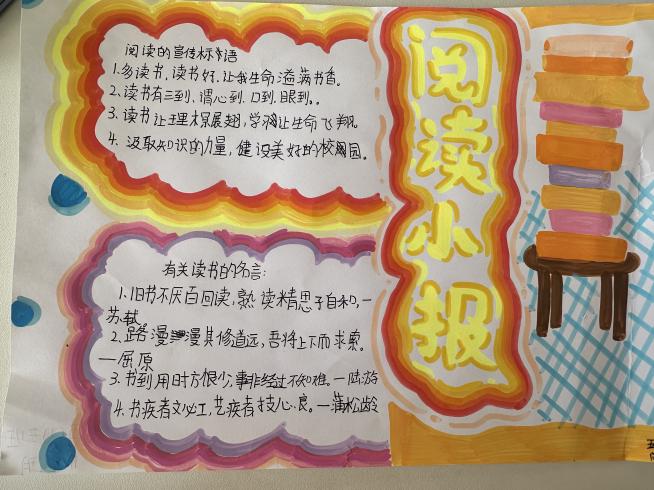 阅读的宣传标语
1.多读书,读书好,让我生命溢满书香。
2.读书有三到、谓心到、口到、眼到。
3.读书让理想展翅,学习让生命飞翔。
4.汲取知识的力量,健设美好的校园。
有关读书的名言:
1.旧书不厌百回读,熟读精思子自知,一
苏轼
2.路漫漫其修道远,吾将上下而求索。
一屈原
3.书到用时方恨少,事非经过不知难。一陆游
4.书痴者文必工,艺痴者技必良。一蒲松龄
阅读小报